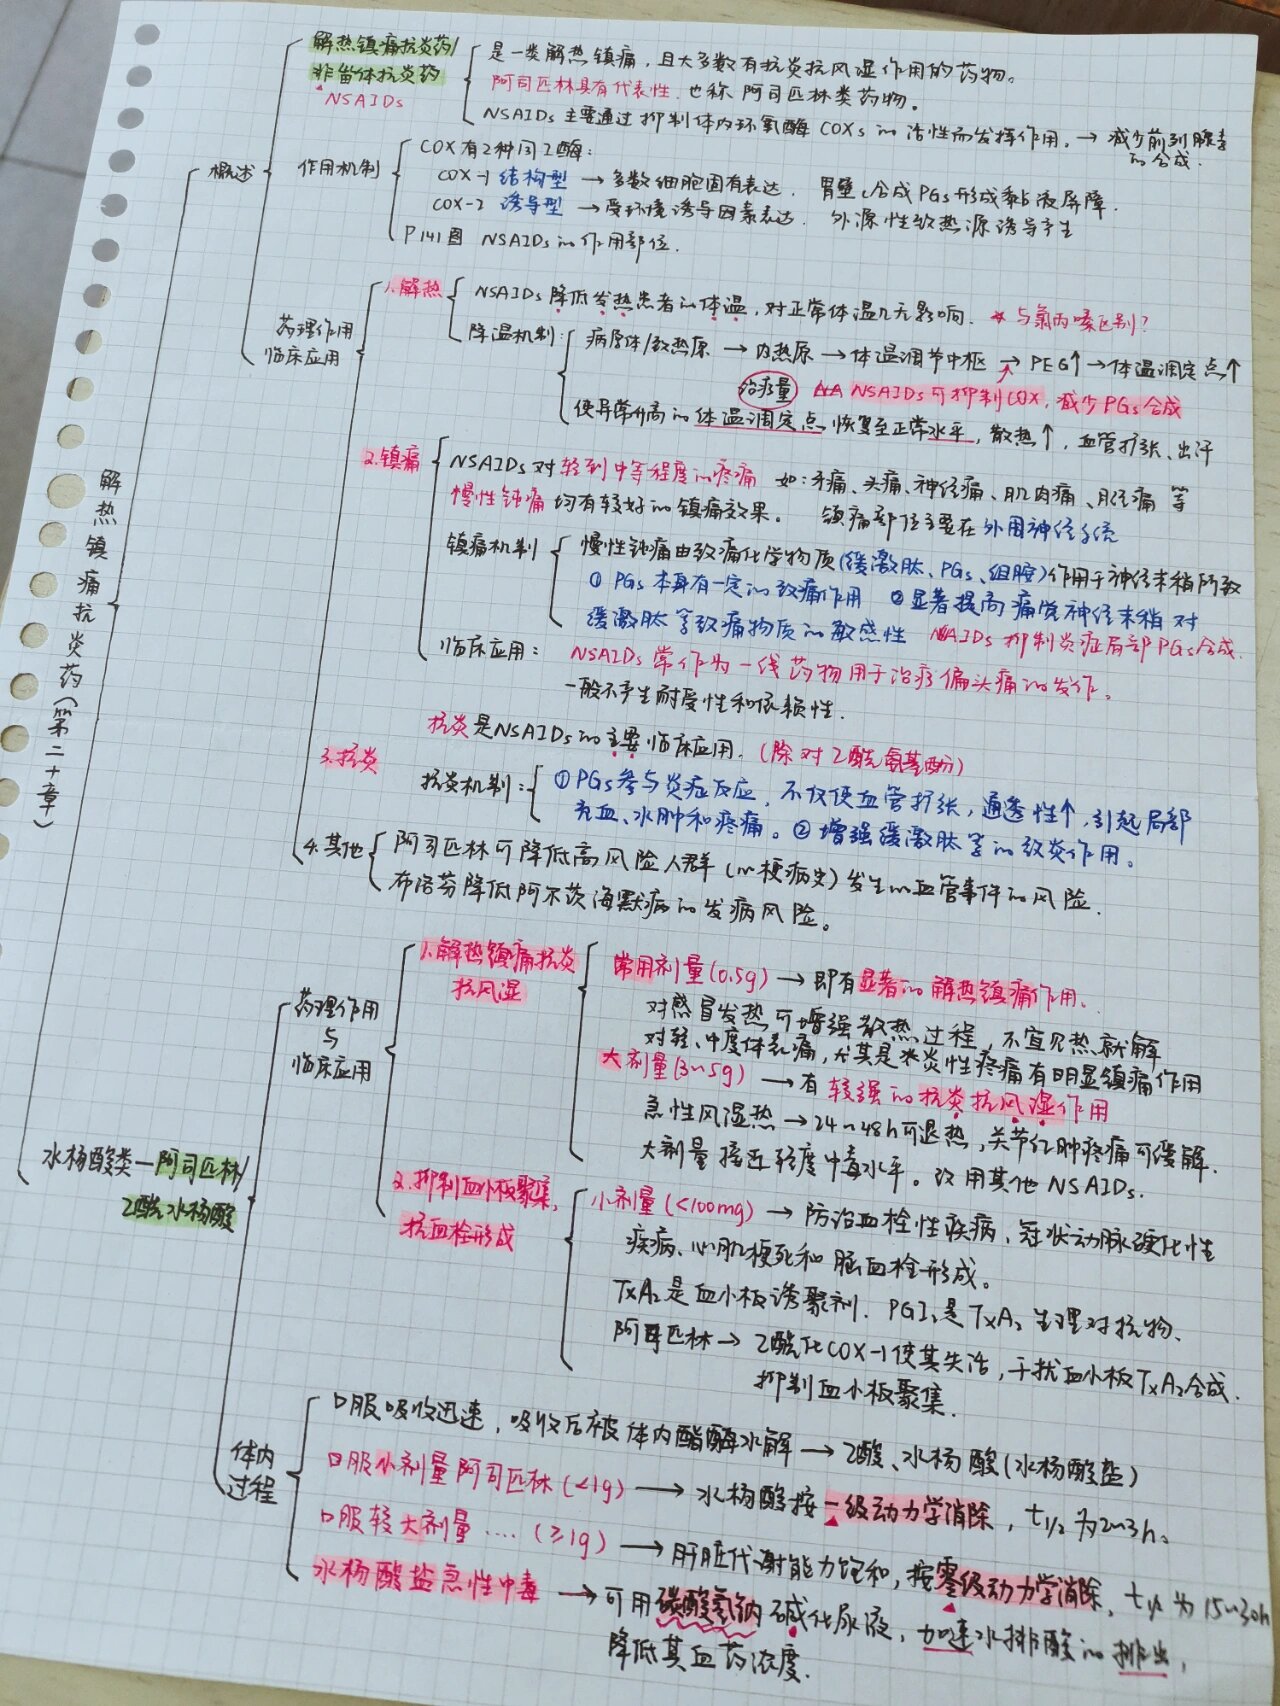 解热镇痛抗炎药(第二十章)
概述
解热镇痛抗炎药/
非甾体抗炎药
NSAIDs
是一类解热镇痛，且大多数有抗炎抗风湿作用的药物。
阿司匹林具有代表性，也称阿司匹林类药物。
NSAIDs 主要通过抑制体内环氧酶COXs的活性而发挥作用。→ 减少前列腺素
的合成.
作用机制
COX有2种同工酶：
COX-1 结构型 → 多数细胞固有表达. 胃壁 合成PGs形成黏液屏障.
COX-2 诱导型 → 受环境诱导因素表达. 外源性致热源诱导产生
P141图 NSAIDs的作用部位.
药理作用
临床应用
1.解热
NSAIDs 降低发热患者的体温，对正常体温几无影响. ※ 与氯丙嗪区别？
降温机制：
病原体/致热原 → 内热原 → 体温调节中枢 → PEG↑ → 体温调定点↑
治疗量 NSAIDs可抑制COX, 减少PGs合成
使异常升高的体温调定点恢复至正常水平，散热↑，血管扩张、出汗
2.镇痛
NSAIDs 对轻到中等程度的疼痛 如：牙痛、头痛、神经痛、肌肉痛、月经痛 等
慢性钝痛均有较好的镇痛效果。 镇痛部位主要在外周神经系统
镇痛机制
慢性钝痛由致痛化学物质(缓激肽、PGs、组胺)作用于神经末梢所致
① PGs 本身有一定的致痛作用 ②显著提高痛觉神经末梢对
缓激肽等致痛物质的敏感性 NSAIDs 抑制炎症局部PGs合成.
临床应用： NSAIDs 常作为一线药物用于治疗偏头痛的发作。
一般不产生耐受性和依赖性.
3.抗炎
抗炎是NSAIDs的主要临床应用. (除对乙酰氨基酚)
抗炎机制：
①PGs参与炎症反应，不仅使血管扩张，通透性↑, 引起局部
充血、水肿和疼痛。②增强缓激肽等的致炎作用。
4.其他
阿司匹林可降低高风险人群(心梗病史)发生心血管事件的风险.
布洛芬降低阿尔茨海默病的发病风险。
水杨酸类—阿司匹林/
乙酰水杨酸
药理作用
与
临床应用
1.解热镇痛抗炎
抗风湿
常用剂量(0.5g) → 即有显著的解热镇痛作用.
对感冒发热可增强散热过程，不宜见热就解
对轻、中度体表痛，尤其是炎性疼痛有明显镇痛作用
大剂量(3~5g) → 有较强的抗炎抗风湿作用
急性风湿热 → 24~48h可退热，关节红肿疼痛可缓解.
大剂量接近轻度中毒水平。改用其他NSAIDs.
2.抑制血小板聚集,
抗血栓形成
小剂量(<100mg) → 防治血栓性疾病，冠状动脉硬化性
疾病、心肌梗死和脑血栓形成。
TxA₂是血小板诱聚剂. PGI₂是TxA₂生理对抗物.
阿司匹林 → 乙酰化COX-1使其失活，干扰血小板TxA₂合成.
抑制血小板聚集.
体内
过程
口服吸收迅速，吸收后被体内酯酶水解 → 乙酸、水杨酸(水杨酸盐)
口服小剂量阿司匹林(<1g) → 水杨酸按一级动力学消除，t1/2为2~3h。
口服较大剂量....(≥1g) → 肝脏代谢能力饱和，按零级动力学消除，t1/2为15~30h
水杨酸盐急性中毒 → 可用碳酸氢钠碱化尿液，加速水排酸的排出，
降低其血药浓度.